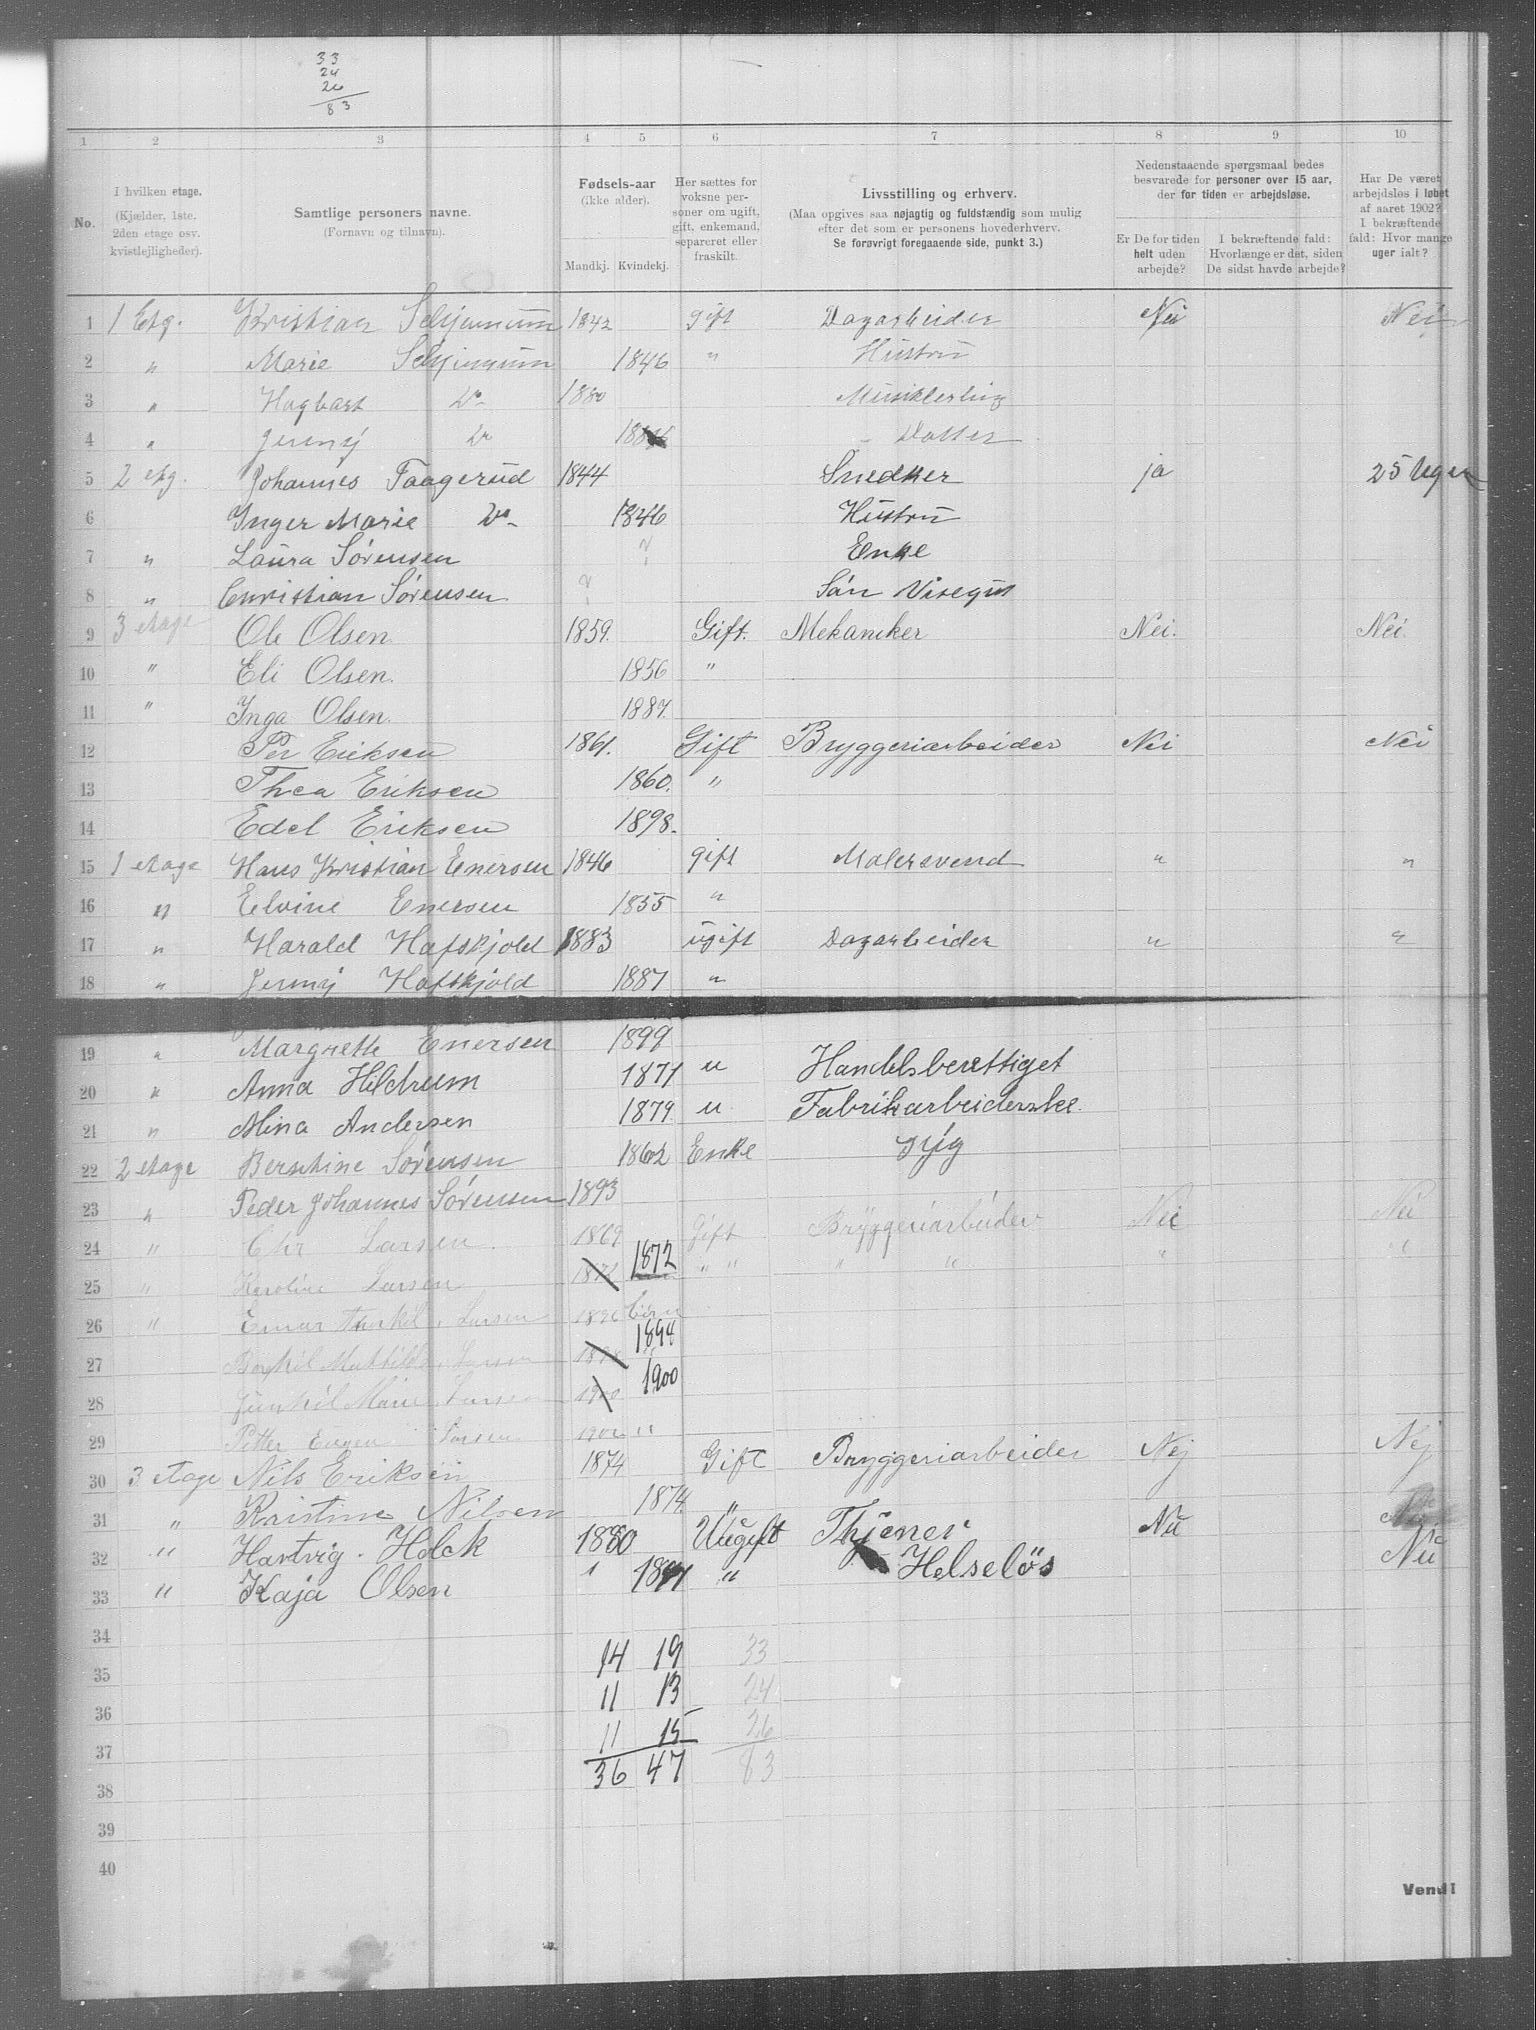 33
24
26
83
1 2 3 4 5 6 7 8 9 10
No.
I hvilken etage.
(Kjælder, 1ste.
2den etage osv.
kvistlejligheder).
Samtlige personers navne.
(Fornavn og tilnavn).
Fødsels-aar
(ikke alder).
Mandkj. Kvindekj.
Her sættes for
voksne per-
soner om ugift,
gift, enkemand,
separeret eller
fraskilt.
Livsstilling og erhverv.
(Maa opgives saa nøjagtig og fuldstændig som mulig
efter det som er personens hovederhverv.
Se forøvrigt foregaaende side, punkt 3.)
Nedenstaaende spørgsmaal bedes
besvarede for personer over 15 aar,
der for tiden er arbejdsløse.
Er De for tiden
helt uden
arbejde?
I bekræftende fald:
Hvorlænge er det, siden
De sidst havde arbejde?
Har De været
arbejdsløs i løbet
af aaret 1902?
I bekræftende
fald: Hvor mange
uger ialt?
1 1 Etg. Kristian 1842 gift Dagarbeider Nei Nei
2 " Marie 1846 " Hustru
3 " Hagbart Do 1880 Musiklerling
4 " Jenny Do Datter
5 2 etg. Johannes Faagerud 1844 Snedker ja 25 Uger
6 Inger Marie Do 1846 Hustru
7 " Laura Sørensen ? Enke
8 " Christian Sørensen ? Søn Visegut
9 3 etage Ole Olsen 1859. Gift. Mekaniker Nei. Nei.
10 " Eli Olsen. 1856 "
11 " Inga Olsen. 1887.
12 Per Eriksen 1861. Gift Bryggeriarbeider Nei Nei
13 Thea Eriksen 1860. "
14 Edel Eriksen 1898.
15 1 etage Hans Kristian Enersen 1846 gift Malersvend " "
16 " Elvine Enersen 1855 "
17 " Harald Hafskjold 1883 ugift Dagarbeider " "
18 " Jenny Hafskjold 1887 "
19 " Margrethe Enersen 1899
20 " Anna Hildrum 1871 u Handelsberettiget
21 " Alina Andersen 1879 u Fabrikarbeiderske.
22 2 etage Berntine Sørensen 1862 Enke Syg
23 " Peder Johannes Sørensen 1893
24 " Chr Larsen 1869 Gift Bryggeriarbeider Nei Nei
25 " Karoline Larsen 1872 1872 " " " " " "
26 " Einar Larsen 1896 börn
27 Larsen 1898 1898
28 Marie Larsen 1900 1900
29 Petter Eugen Larsen 1902 "
30 3 etage Nils Eriksen 1874 Gift Bryggeriarbeider Nej Nej
31 " Kristine Nilsen 1874. "
32 " Hartvig. Holck 1880 Uugift Thjener Nei Nei
33 " Kaja Olsen " " Helselös
34
35
36
37
38
39
40
14 19 33
11 13 24
11 15 26
36 47 83
Vend!